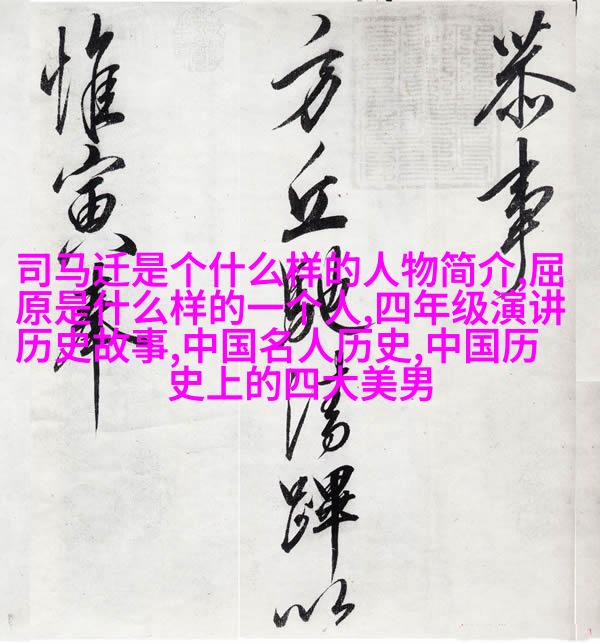 恭事
方丘馳清蹕以
惟寅奉
司马迁是个什么样的人物简介,屈
原是什么样的一个人,四年级演讲
历史故事,中国名人历史,中国历
史上的四大美男